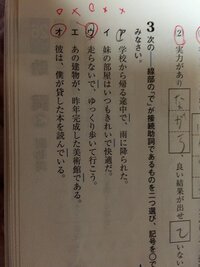 2 実力があり
ながら
良い結果が出せ
ていない
3 次の――線部の「で」が接続助詞であるものを二つ選び、記号を○で
みなさい。
ア 学校から帰る途中で、雨に降られた。
イ 妹の部屋はいつもきれいで快適だ。
ウ 走らないで、ゆっくり歩いて行こう。
エ あの建物が、昨年完成した美術館である。
オ 彼は、僕が貸した本を読んでいる。